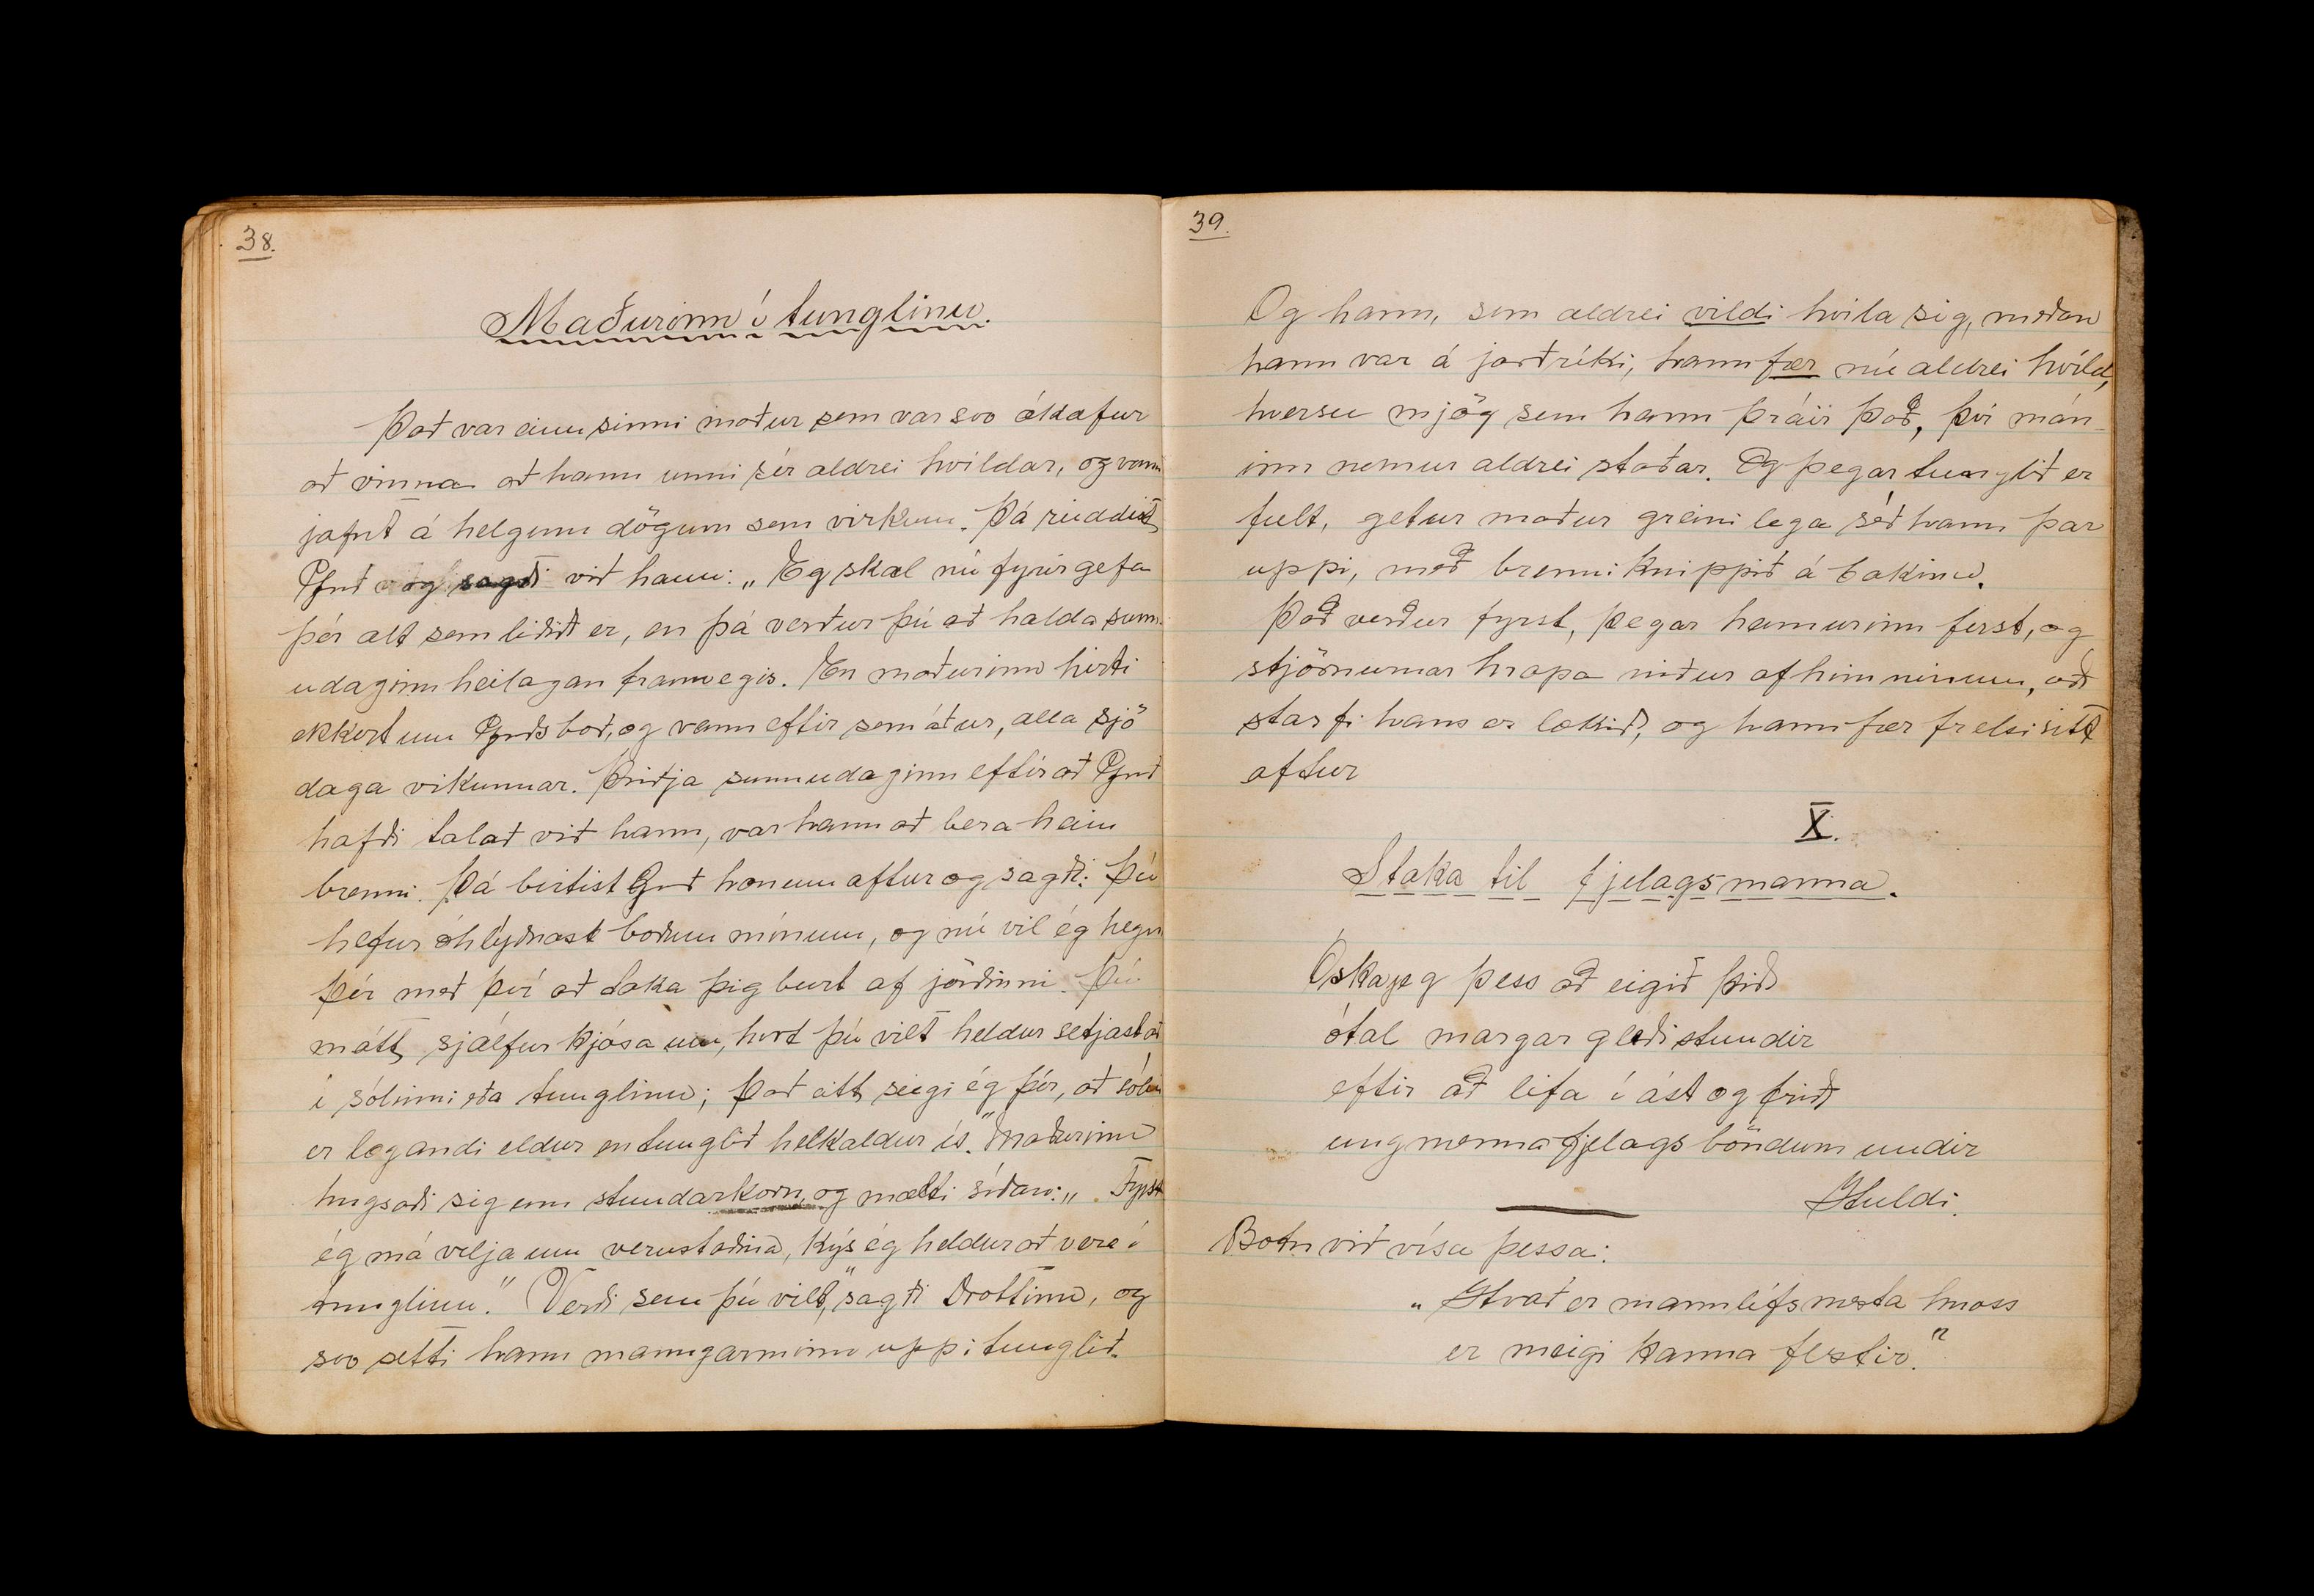 38.
Maðurinn í tunglinu.
Það var einu sinni maður sem var svo ákafur
að vinna að hann unni sér aldrei hvíldar, og vann
jafnt á helgum dögum sem virkum. Þá reiddist
Guð og sagði við hann: „Eg skal nú fyrirgefa
þér alt sem liðið er, en þá verður þú að halda sunn-
udaginn heilagan framvegis. En maðurinn hirti
ekkert um Guðs boð, og vann eftir sem áður, alla sjö
daga vikunnar. Þriðja sunnudaginn eftir að Guð
hafði talað við hann, var hann að bera heim
brenni. Þá birtist Guð honum aftur og sagði: Þú
hefur óhlýðnast boðum mínum, og nú vil ég hegna
þér með því að taka þig burt af jörðinni. Þú
mátt sjálfur kjósa um, hvort þú vilt heldur setjast að
í sólinni eða tunglinu; það eitt seigi ég þér, að sólin
er logandi eldur en tunglið helkaldur ís." Maðurinn
hugsaði sig um stundarkorn, og mælti síðan: „Fyrst
ég má velja um verustaðina, kýs ég heldur að vera í
tunglinu." Verði sem þú vilt," sagði Drottinn, og
svo setti hann manngarminn upp í tunglið.
39.
Og hann, sem aldrei vildi hvíla sig, meðan
hann var á jarðríki, hann fær nú aldrei hvíld,
hversu mjög sem hann þráir það, því mán-
inn nemur aldrei staðar. Og þegar tunglið er
fult, getur maður greinilega séð hann þar
uppi, með brenniknippið á bakinu.
Það verður fyrst, þegar heimurinn ferst, og
stjörnurnar hrapa niður af himninum, að
starfi hans er lokið, og hann fær frelsi sitt
aftur
X.
Staka til fjelagsmanna.
Óska jeg þess að eigið þið
ótal margar gleðistundir
eftir að lifa í ást og frið
ungmennafjelags böndum undir
Huldi.
Botn við vísu þessa:
„Hvað er mannlífs mesta hnoss
er meigi kanna flestir."